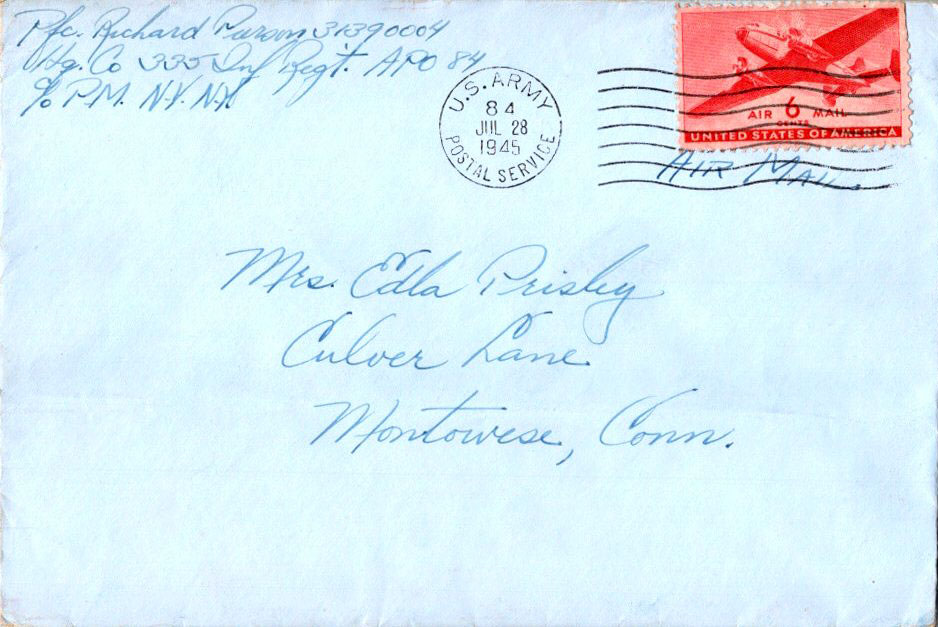 Pfc. Richard Parson 31390004
Hdq. Co 335 Inf Regt. APO 84
c/o P.M. N.Y. N.Y.
U.S. ARMY
84
JUL 28
1945
POSTAL SERVICE
AIR 6 MAIL
CENTS
UNITED STATES OF AMERICA
AIR MAIL.
Mrs. Edla Prisley
Culver Lane
Montowese, Conn.